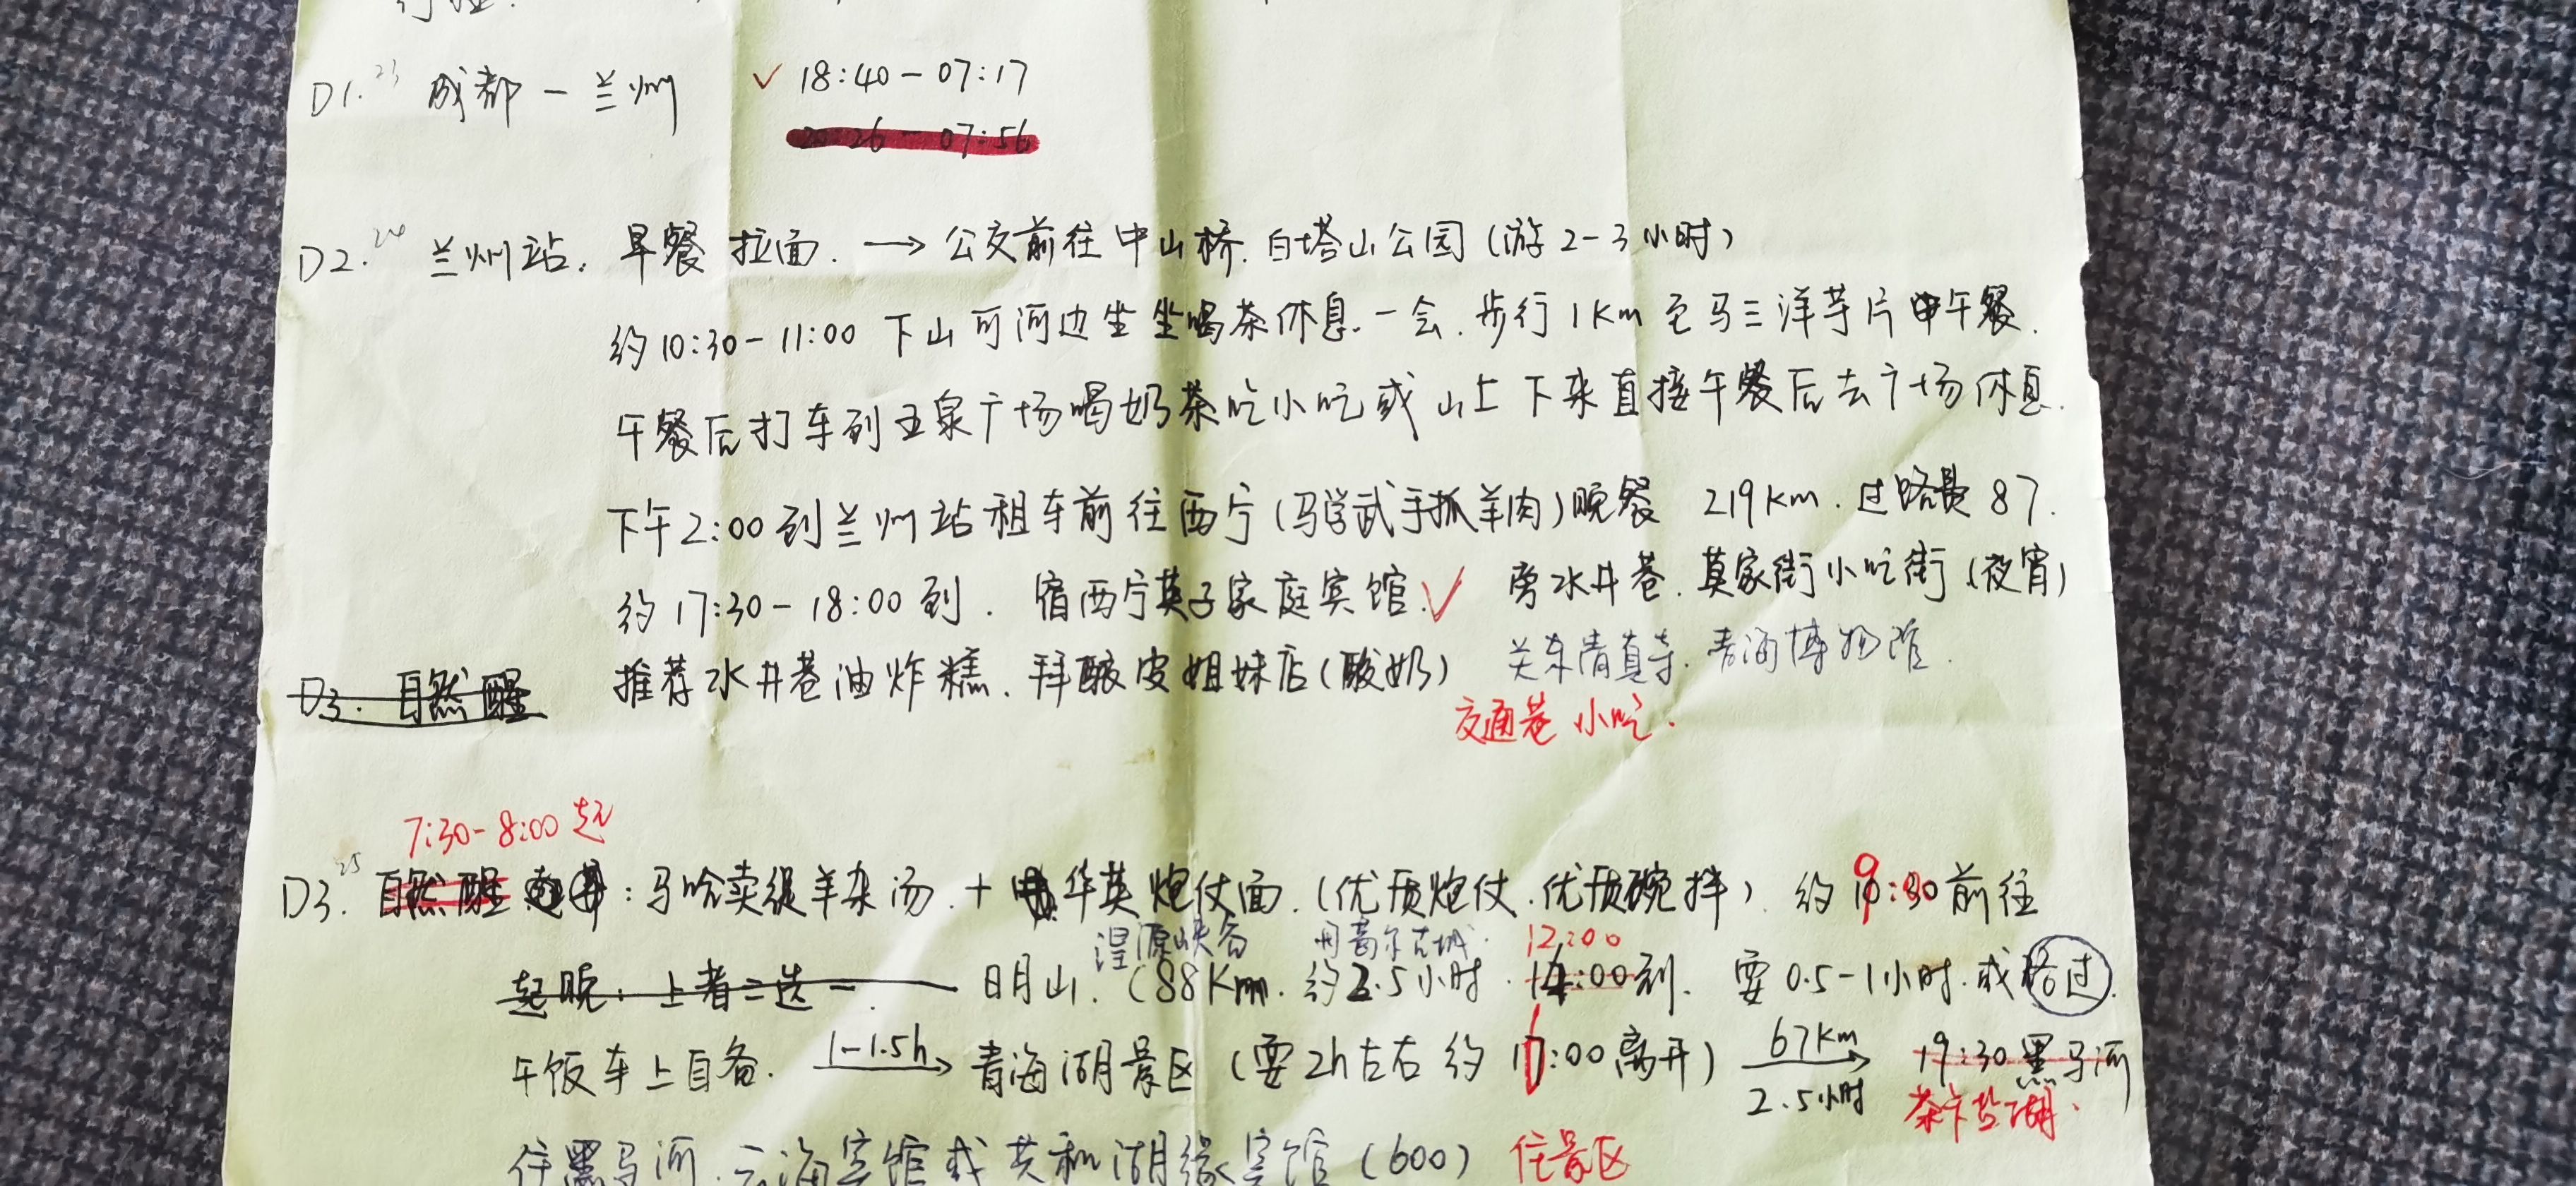 行程.
D1. 23 成都 — 兰州 ✓ 18:40 — 07:17
26 — 07:56
D2. 24 兰州站. 早餐 拉面. → 公交前往中山桥. 白塔山公园 (游2-3小时)
约10:30-11:00 下山可河边坐坐喝茶休息一会. 步行1Km至马三洋芋片午餐.
午餐后打车到五泉广场喝奶茶吃小吃或山上下来直接午餐后去广场休息.
下午2:00到兰州站租车前往西宁(马学武手抓羊肉)晚餐 219km. 过路费87.
约17:30-18:00到. 宿西宁英子家庭宾馆.✓ 旁水井巷. 莫家街小吃街(夜宵)
D3. 自然醒 推荐水井巷油炸糕. 拜酿皮姐妹店(酸奶) 关东清真寺. 青海博物院.
交通巷小吃.
7:30-8:00起
D3. 25 自然醒 : 马哈卖缇羊杂汤. + 华英炮仗面. (优质炮仗. 优质碗拌). 约9:30前往
湟源峡谷 丹葛尔古城. 12:00
起晚: 上者二选一. 日月山. (88Km. 约2.5小时. 14:00到. 耍0.5-1小时. 或路过.
午饭车上自备. 1-1.5h → 青海湖景区 (耍2h左右 约17:00离开) 67Km 2.5小时 → 19:30 黑马河
茶卡盐湖.
住黑马河. 云海宾馆或共和湖缘宾馆 (600) 住景区